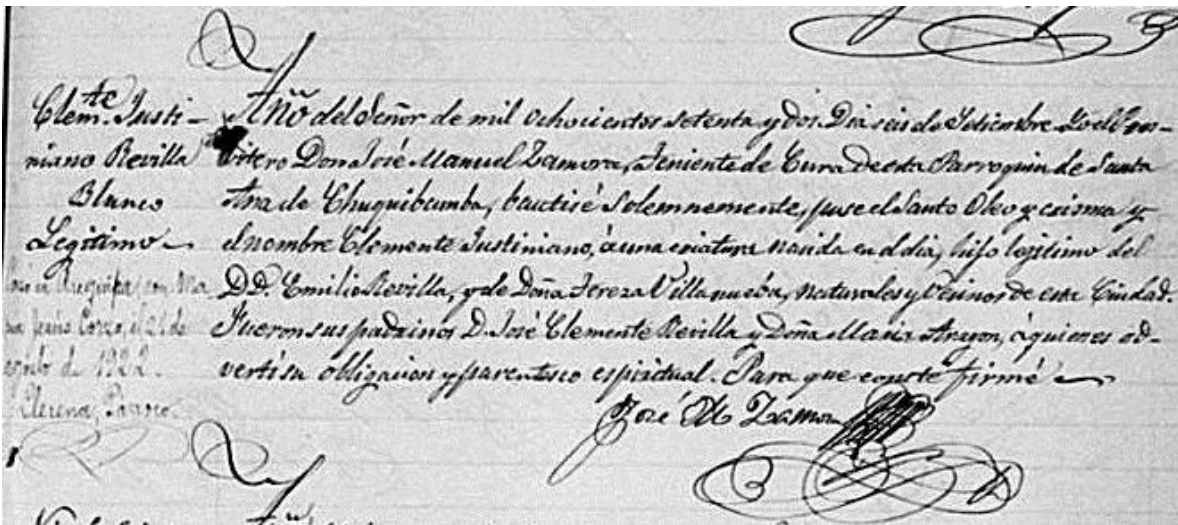 Clem.te Justi-
niano Revilla
Blanco
Legitimo
Arequipa, con Ma
Jesús el 21 de
de 1922.
Llerena, Párroco
Año del Señor de mil ochocientos setenta y dos. Dia seis de Setiembre. Yo el Pres-
bitero Don José Manuel Zamora, Teniente de Cura de esta Parroquia de Santa
Ana de Chuquibamba, bautisé Solemnemente, puse el Santo Oleo y crisma y
el nombre Clemente Justiniano, á una criatura nasida en el dia, hijo lejitimo del
D.D. Emilio Revilla, y de Doña Tereza Villanueba, naturales y Vesinos de esta Ciudad.
Fueron sus padrinos D. José Clemente Revilla y Doña Maria Aragon, á quienes ad-
vertí su obligacion y parentesco espiritual. Para que conste firmé
José M Zamora